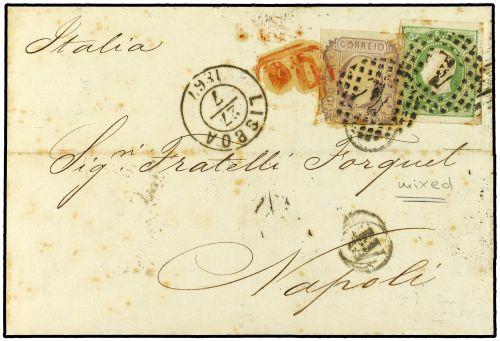 Italia
CORREIO
LISBOA
27
7
1867
Sig.ri Fratelli Forquet
mixed
Napoli